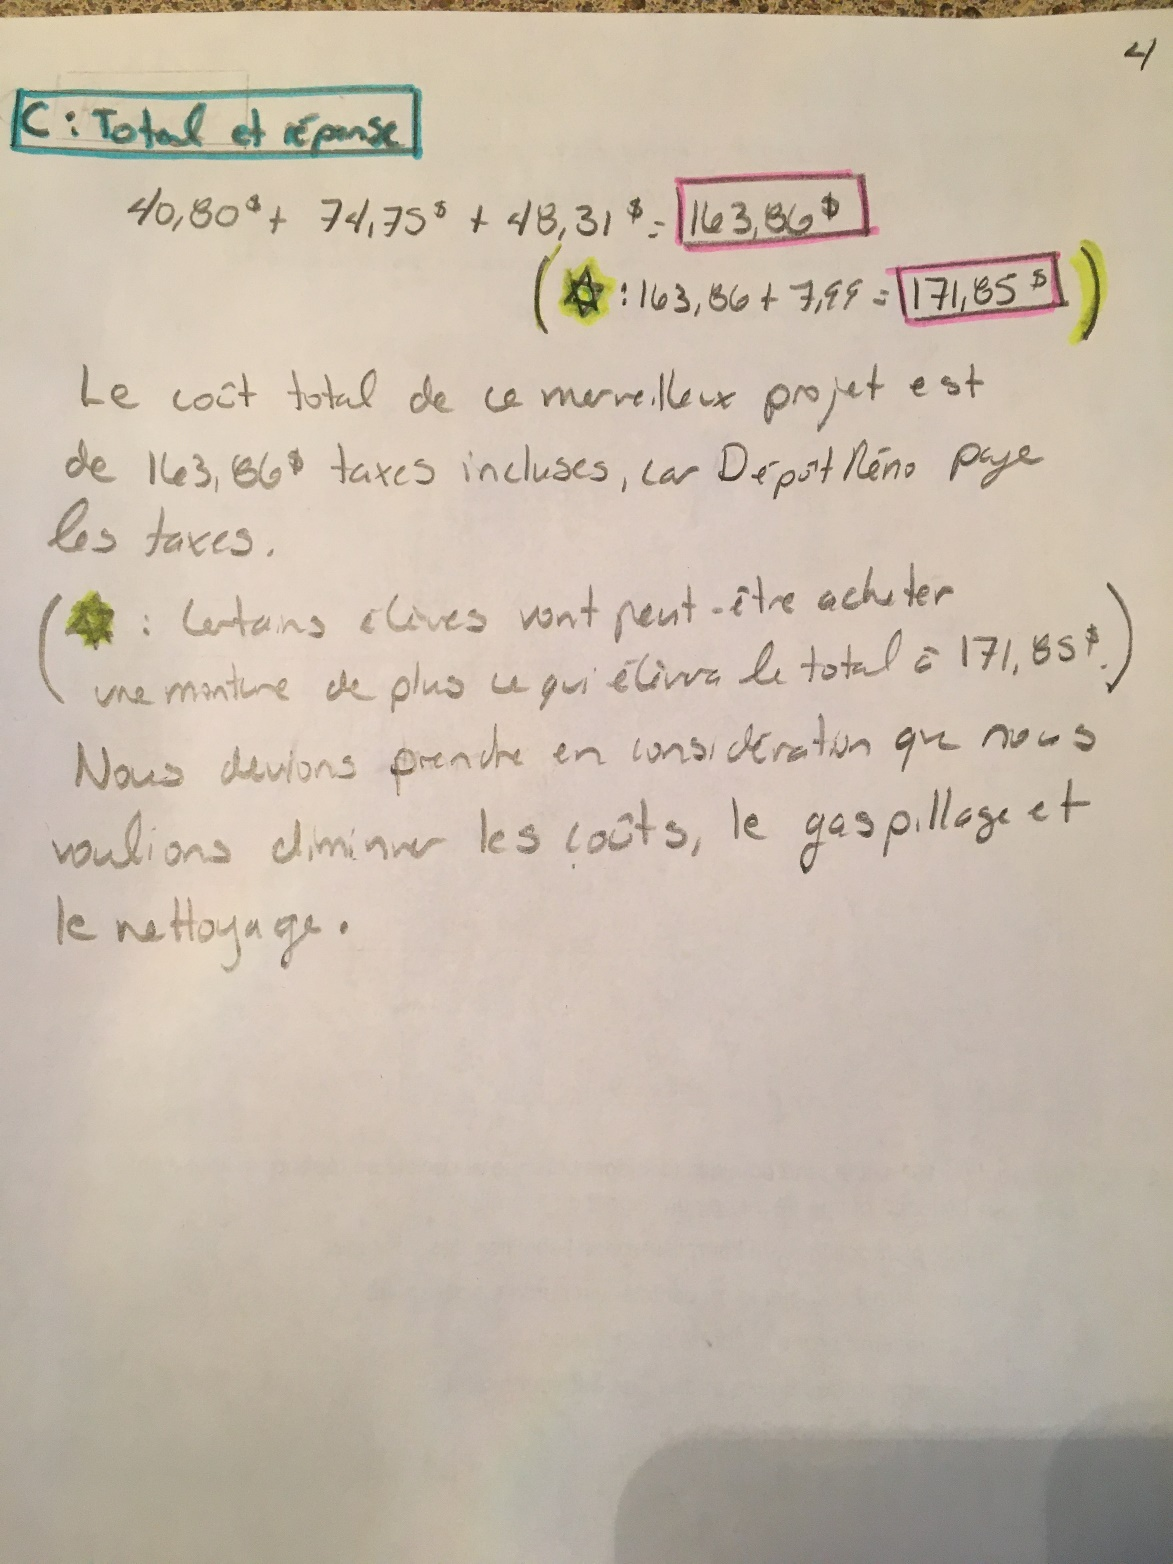 4
C : Total et réponse
40,80$ + 74,75$ + 48,31$ = 163,86$
(✡ : 163,86 + 7,99 = 171,85$)
Le coût total de ce merveilleux projet est
de 163,86$ taxes incluses, car Dépôt Réno paye
les taxes.
(✡ : Certains élèves vont peut-être acheter
une monture de plus ce qui élèvra le total à 171,85$.)
Nous devions prendre en considération que nous
voulions diminuer les coûts, le gaspillage et
le nettoyage.